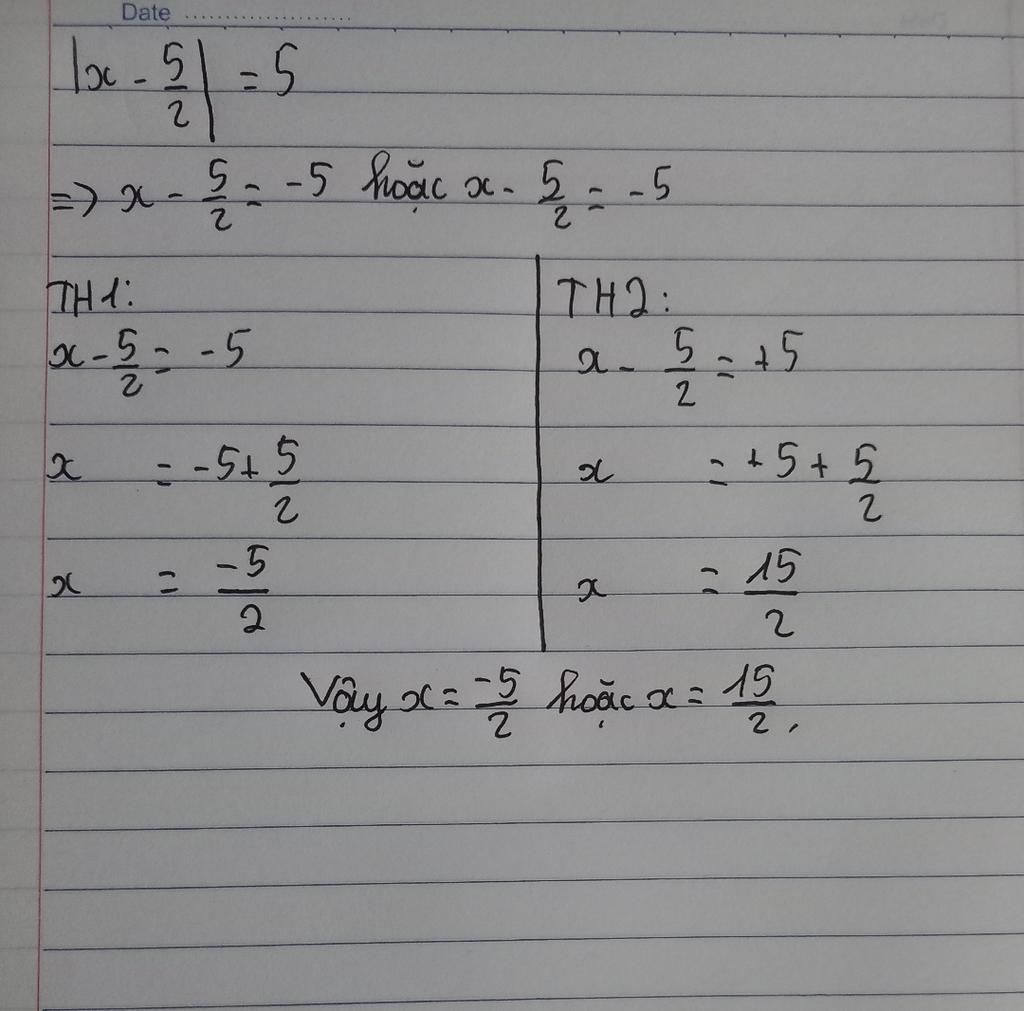 Date ....................
|x - 5/2| = 5
=> x - 5/2 = -5 hoặc x - 5/2 = -5
TH1:
x - 5/2 = -5
x = -5 + 5/2
x = -5/2
TH2:
x - 5/2 = +5
x = +5 + 5/2
x = 15/2
Vậy x = -5/2 hoặc x = 15/2.